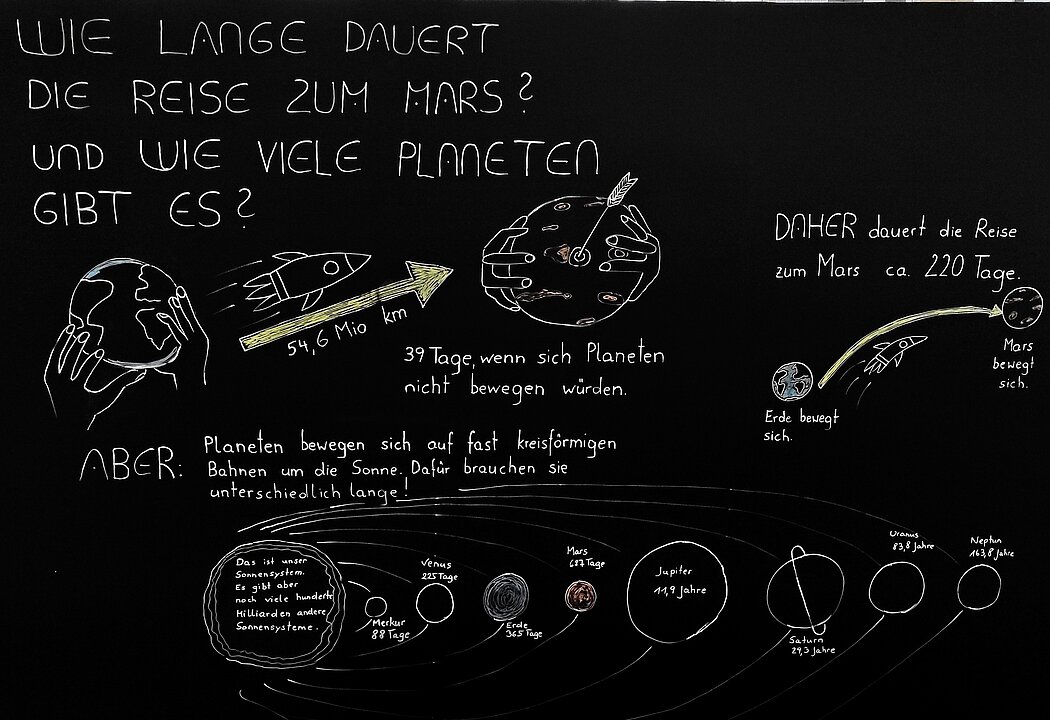 WIE LANGE DAUERT
DIE REISE ZUM MARS?
UND WIE VIELE PLANETEN
GIBT ES?
54,6 Mio km
39 Tage, wenn sich Planeten
nicht bewegen würden.
DAHER dauert die Reise
zum Mars ca. 220 Tage.
Mars
bewegt
sich.
Erde bewegt
sich.
ABER:
Planeten bewegen sich auf fast kreisförmigen
Bahnen um die Sonne. Dafür brauchen sie
unterschiedlich lange!
Das ist unser
Sonnensystem.
Es gibt aber
noch viele hundert
Milliarden andere
Sonnensysteme.
Merkur
88 Tage
Venus
225 Tage
Erde
365 Tage
Mars
687 Tage
Jupiter
11,9 Jahre
Saturn
29,5 Jahre
Uranus
83,8 Jahre
Neptun
163,8 Jahre